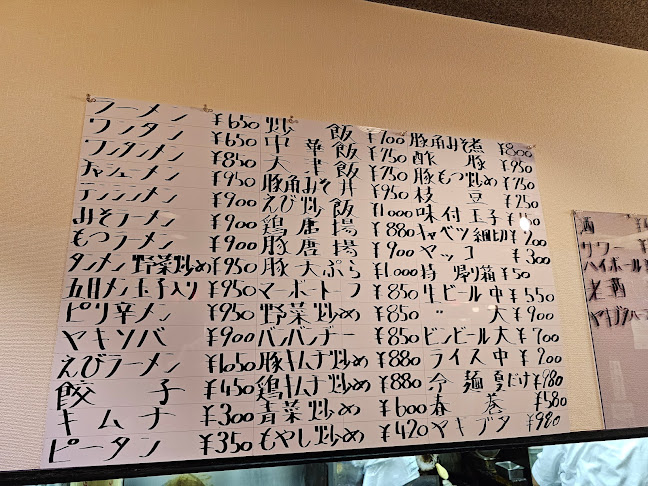 ラーメン ¥650
ワンタン ¥650
ワンタンメン ¥850
チャシューメン ¥950
テンシンメン ¥900
みそラーメン ¥900
もつラーメン ¥900
タンメン 野菜炒め ¥950
五目メン 玉子入り ¥950
ピリ辛メン ¥950
ヤキソバ ¥900
えびラーメン ¥1050
餃子 ¥450
キムチ ¥300
ピータン ¥350
炒飯 ¥700
中華飯 ¥750
天津飯 ¥750
豚角みそ丼 ¥950
えび炒飯 ¥1000
鶏唐揚 ¥880
豚唐揚 ¥900
豚天ぷら ¥1000
マーボートーフ ¥850
野菜炒め ¥850
バンバンヂー ¥850
豚キムチ炒め ¥880
鶏キムチ炒め ¥880
青菜炒め ¥600
もやし炒め ¥420
豚角みそ煮 ¥800
酢豚 ¥950
豚もつ炒め ¥750
枝豆 ¥250
味付玉子
キャベツ細切 ¥200
ヤッコ ¥300
持帰り箱 ¥50
生ビール中 ¥550
〃 大 ¥900
ビンビール大 ¥700
ライス中 ¥200
冷麺夏だけ ¥980
春巻 ¥580
ヤキブタ ¥980
酒
サワー
ハイボール
老酒